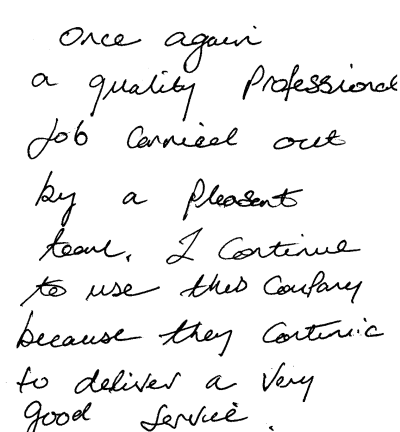 Once again
a quality Professional
job carried out
by a pleasant
team. I continue
to use this company
because they continue
to deliver a very
good service.